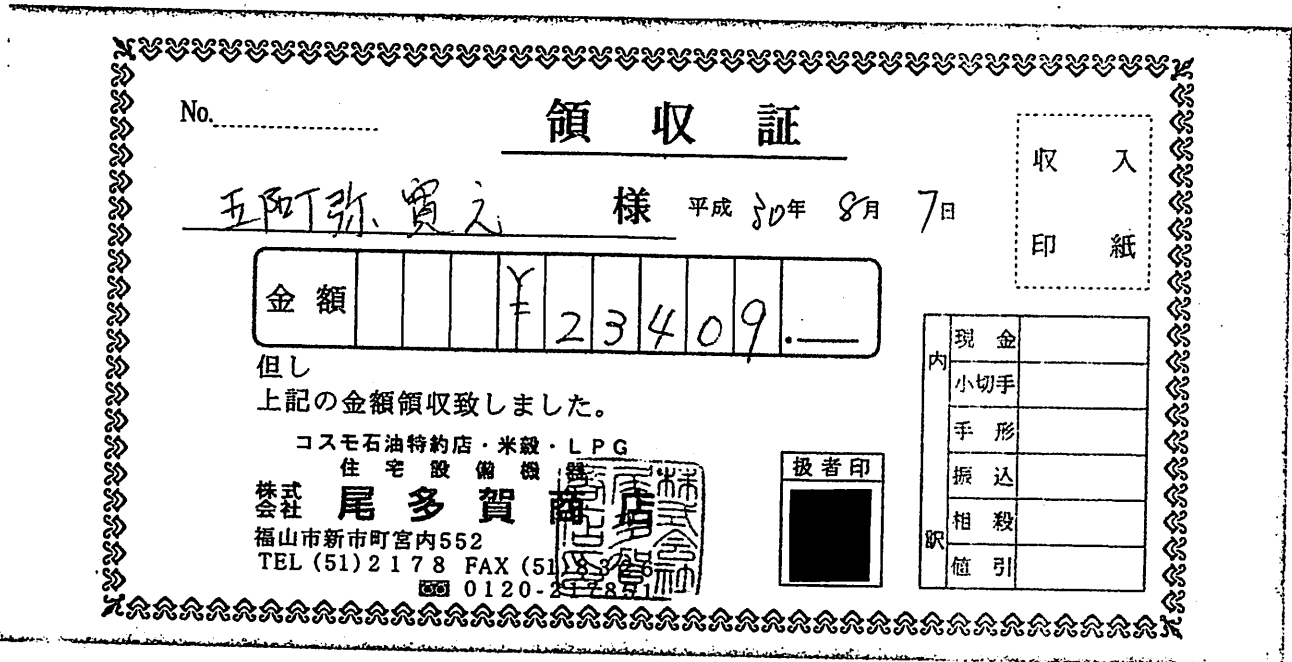 No.
領収証
収入
印紙
五阿弥寛之 様 平成30年 8月 7日
金額 ¥23409.—
但し
上記の金額領収致しました。
コスモ石油特約店・米穀・LPG
住宅設備機器
株式会社 尾多賀商店
福山市新市町宮内552
TEL (51)2178 FAX (51)
0120-
扱者印
内訳
現金
小切手
手形
振込
相殺
値引